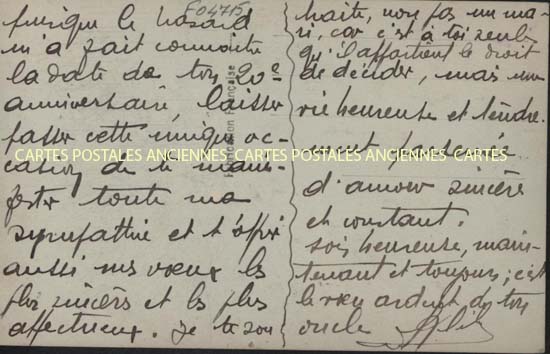 F04715
puisque le hasard
m'a fait connaitre
la date de ton 20e
anniversaire, laisser
passer cette unique oc-
casion de te mani-
fester toute ma
sympathie et t'offrir
aussi mes vœux les
plus sincères et les plus
affectueux. Je te sou
haite, non pas un ma-
ri, car c'est à toi seule
qu'il appartient le droit
de décider, mais une
vie heureuse et tendre.
ment
d'amour sincère
et constant.
sois heureuse, main-
tenant et toujours; c'est
le vœu ardent de ton
oncle
Française
CARTES POSTALES ANCIENNES CARTES POSTALES ANCIENNES CARTES